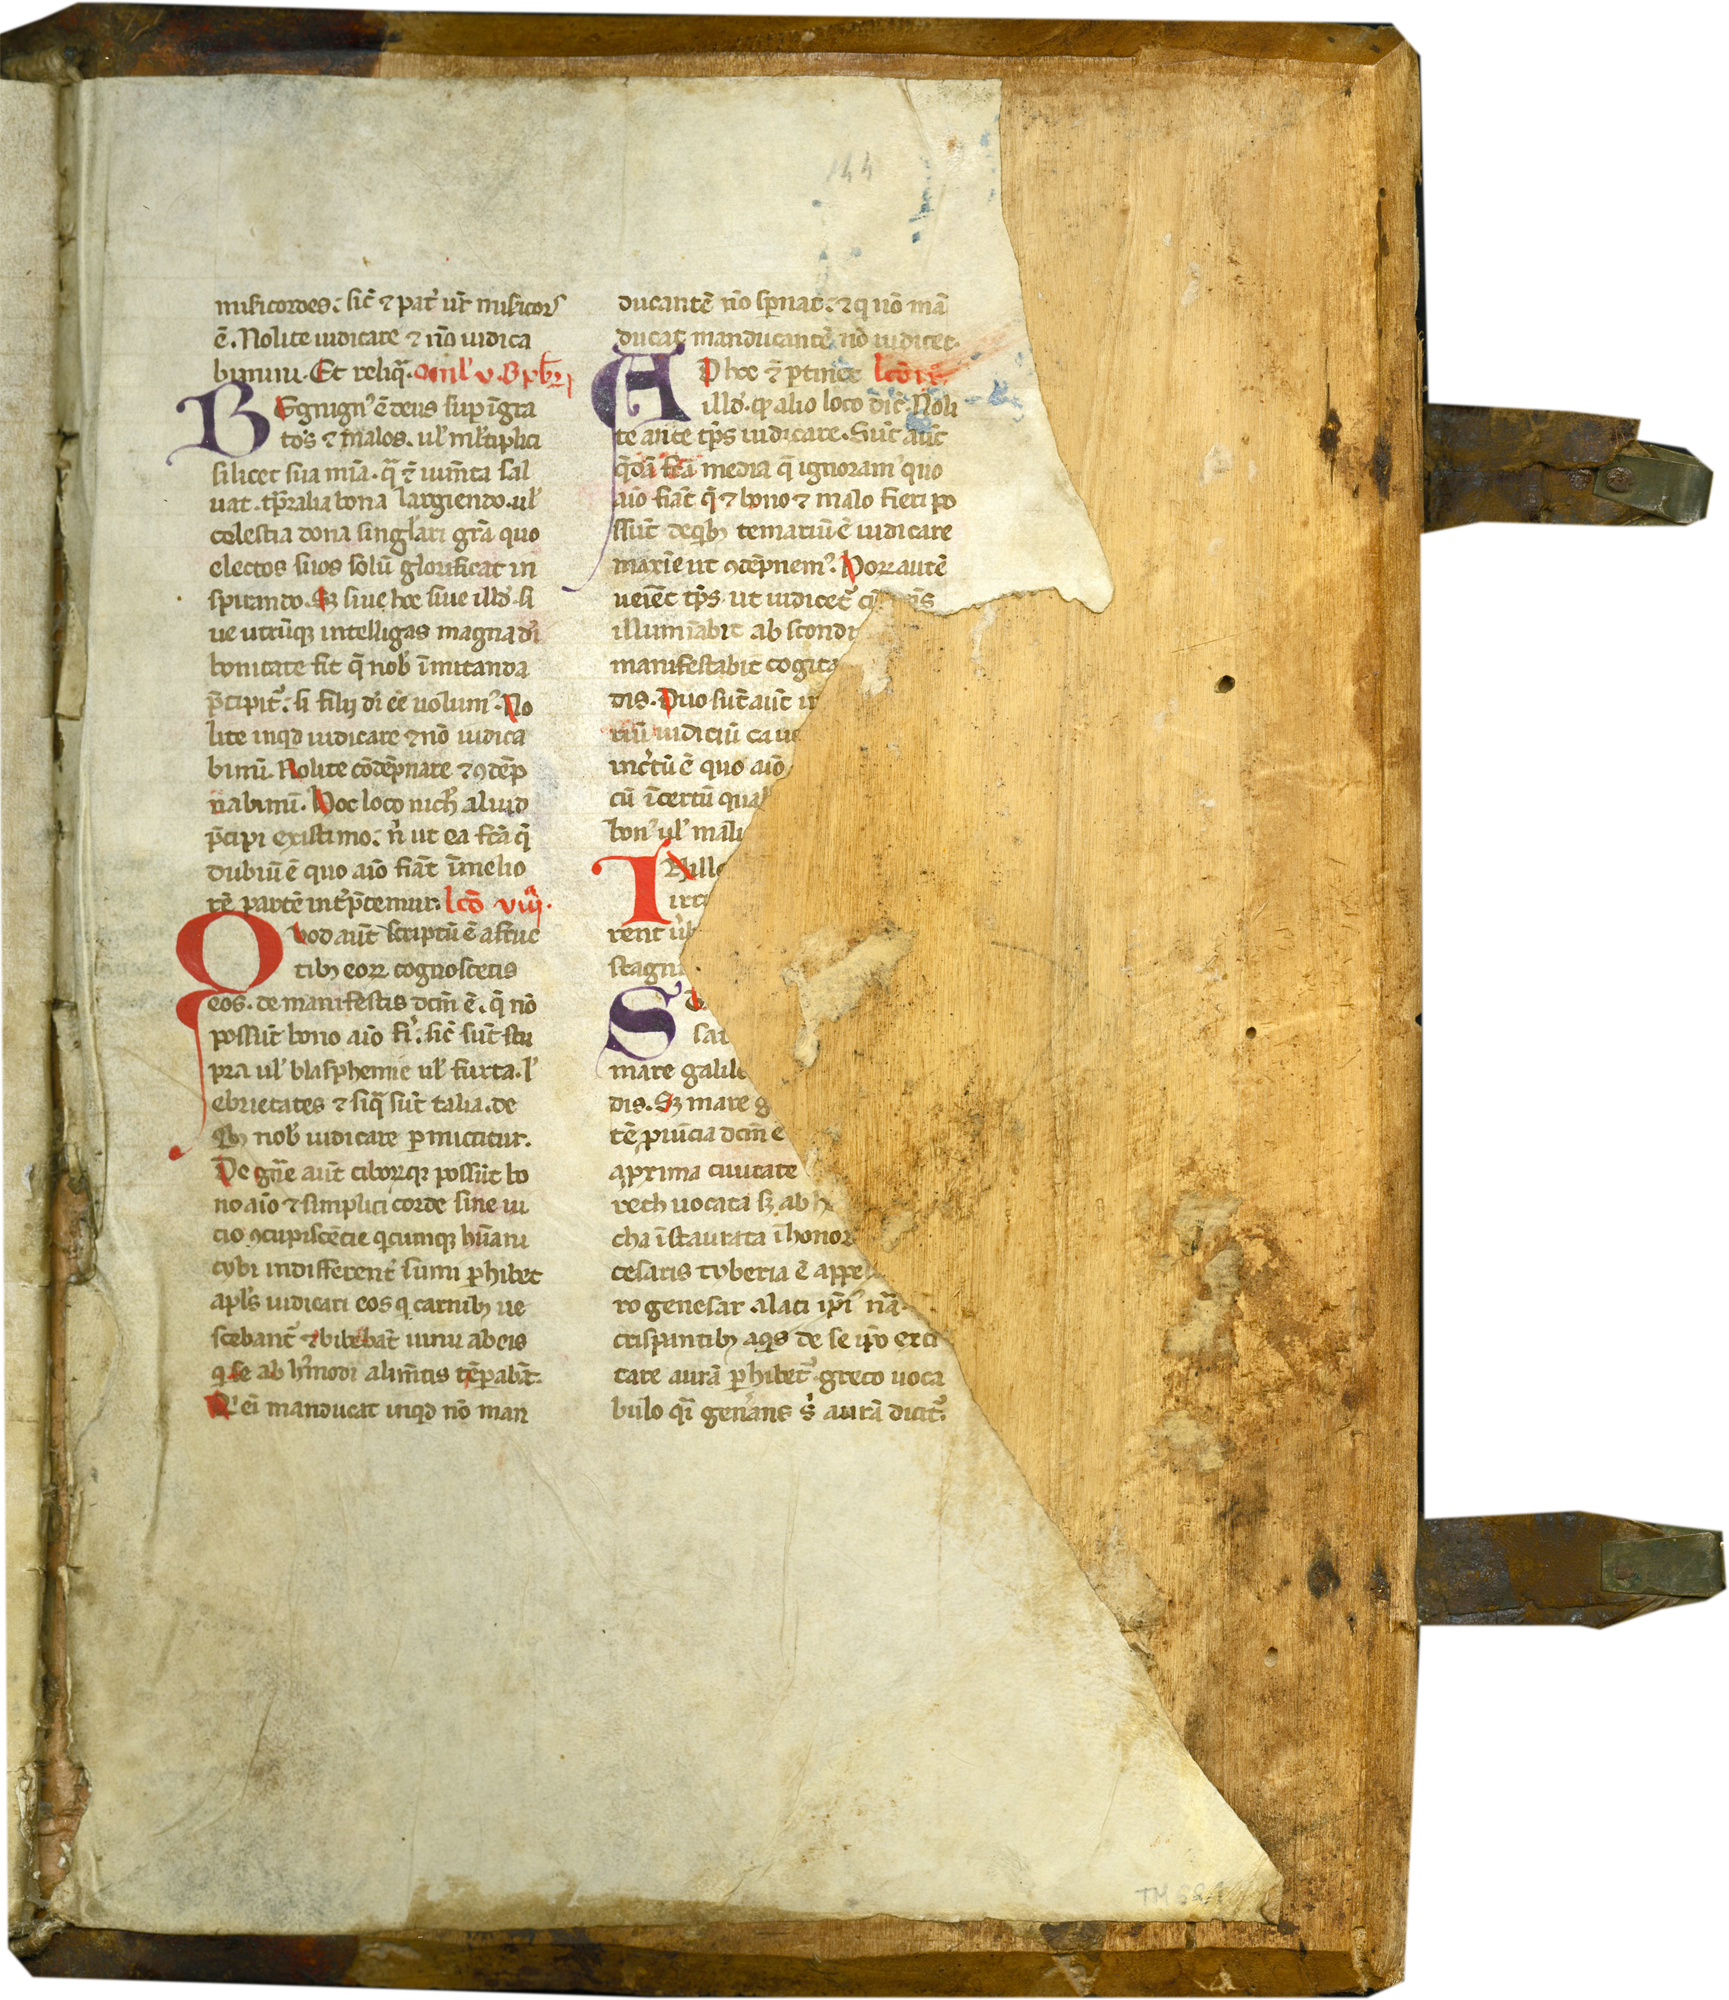 144
misicordes. sic̄ ⁊ pat̓ ur̄ misicors
ē. Nolite iudicare ⁊ nō iudica
bimini. Et reliq̄. Oml̓ v. B
BEgnign᷒ ē deus sup īgra
tos ⁊ malos. ul̓ ml̓tiplici
silicet sua mīa. q̄ ⁊ ium̄ta sal
uat. tp̄ralia bona largiendo. ul̓
celestia dona singlari grā quo
electos suos solū glorificat in
spirando. Sꝫ siue hoc siue illd̓. si
ue utrūqꝫ intelligas magna dī
bonitate fit q̄ nob̓ īmitanda
p̄cipit᷒. si filij dī eē uolum᷒. No
lite inqd iudicare ⁊ nō iudica
bimī. Nolite cōdēpnare ⁊ ꝯdēp
nabimī. Hoc loco nich̓ aluid
p̄cipi existimo. n̄ ut ea fc̄a q̄
dubiū ē quo aīo fiāt ī melio
rē partē int̓p̄temur. lcō viij.
QVod aūt scriptū ē a fruc
tibꝫ eoꝝ cognoscetis
eos. de manifestis dcm̄ ē. q̄ nō
possūt bono aīo fi̓. sic̄ sūt stu
pra ul̓ blasphemie ul̓ furta. l̓
ebrietates ⁊ siq̄ sūt talia. de
qꝫ nob̓ iudicare ꝑmittitur.
De gn̄e aūt ciboꝝqꝫ possūt bo
no aīo ⁊ simplici corde sine ui
cio ꝯcupiscēcie q̄cumqꝫ hūani
cybi indifferent̓ sumi ꝓhibet
apl̓s iudicari eos q̄ carnibꝫ ue
scebant᷒ ⁊ bibebāt uinū ab eis
q̄ se ab h̓modi alim̄tis tēꝑabāt.
Q̓ eī manducat inqd nō man
ducantē nō sp̄nat. ⁊ q̄ nō mā
ducat manducantē nō iudicet.
ADhoc ⁊ ꝑtinet lcō ix.
illd̓. qꝫ alio loco dic̄. Noli
te ante tp̄s iudicare. Sūt aūt
q̄dā fc̄a media q̄ ignoram᷒ quo
aīo fiāt q̄ ⁊ bono ⁊ malo fieri po
ssūt de qbꝫ temariū ē iudicare
maxīe ut ꝯdēpnem᷒. Hoꝝ autē
ueīet tp̄s ut iudicet᷒ cū
illumīabit abscond
manifestabit cogita
dis. Duo sūt aūt
riū iudiciū caue
inc̓tū ē quo aīo
cū īcertū qual
bon᷒ ul̓ malu
INillo
irr
rent
stagn
S
sar
mare galile
dis. Sꝫ mare g
tē ꝓuīcia dcm̄ ē
a prima ciuitate
reth uocata sꝫ ab h
cha īstaurata ī honor
cesaris tyberia ē appe
ro genesar a laci ip̄i᷒ nā
crispantibꝫ aqs de se ip̄o exci
tare aurā ꝓhibet᷒ greco uoca
bulo qī gen̓ans s̓ aurā dicit᷒.